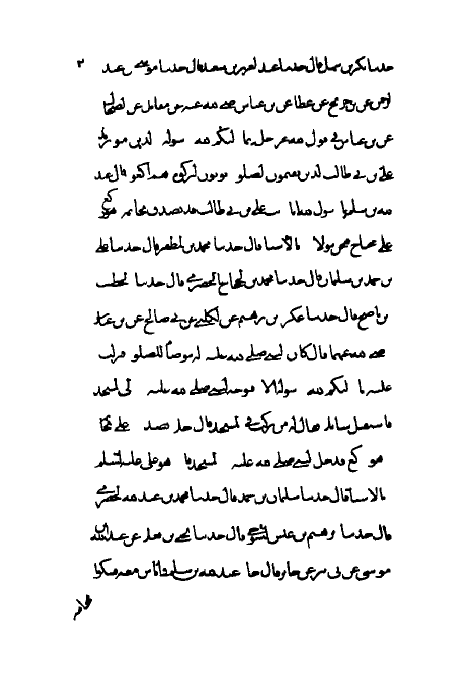 ٢ حدثنا بكر بن سهل قال حدثنا عبد الغني بن سعيد قال حدثنا موسى بن عبد
الرحمن عن ابن جريج عن عطا عن ابن عباس رضي الله عنه وعن مقاتل عن الضحاك
عن ابن عباس في قول الله عز وجل انما وليكم الله ورسوله والذين امنوا يريد
علي بن ابي طالب الذين يقيمون الصلوة ويوتون الزكوة وهم راكعون قال عبد
الله بن سلم يا رسول الله انا رايت علي بن ابي طالب قد تصدق بخاتمه وهو راكع
على محتاج فنحن نتولاه وبالاسناد قال حدثنا محمد بن المظفر قال حدثنا علي
بن احمد بن سليمان قال حدثنا محمد بن الحجاج الحضرمي قال حدثنا الخصيب
بن ناصح قال حدثنا عكرمة بن ابراهيم عن الكلبي عن ابي صالح عن ابن عباس
رضي الله عنهما قال كان النبي صلى الله عليه وسلم يتوضأ للصلوة فنزلت
عليه انما وليكم الله ورسوله الاية فتوجه النبي صلى الله عليه الى المسجد
فاستقبل سائلا فقال له من تركت في المسجد قال رجلا تصدق علي بخاتمه
وهو راكع فدخل النبي صلى الله عليه المسجد فاذا هو علي عليه السلم
وبالاسناد قال حدثنا سليمان بن احمد قال حدثنا محمد بن عبد الله الحضرمي
قال حدثنا ابراهيم بن عيسى التنوخي قال حدثنا يحيى بن يعلى عن عبيد الله بن
موسى عن ابي الزبير عن جابر قال جا عبد الله بن سلم واناس معه يشكون
مجانبة